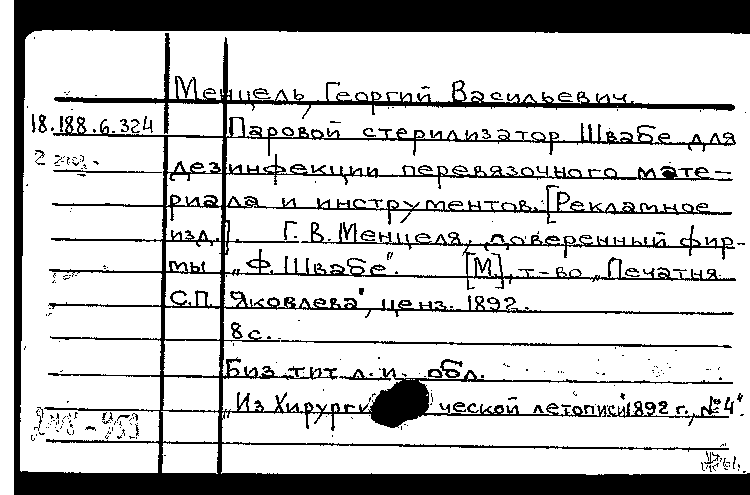 Менцель, Георгий Васильевич.
18.188.6.324 Паровой стерилизатор Швабе для
2 экз. дезинфекции перевязочного мате-
риала и инструментов. [Рекламное
изд.]. Г. В. Менцеля, доверенный фир-
мы „Ф. Швабе". [М], т-во „Печатня
С.П. Яковлева", ценз. 1892.
8 с.
Биз тит л. и. обл.
„Из Хирурги ческой летописи 1892 г., № 4"